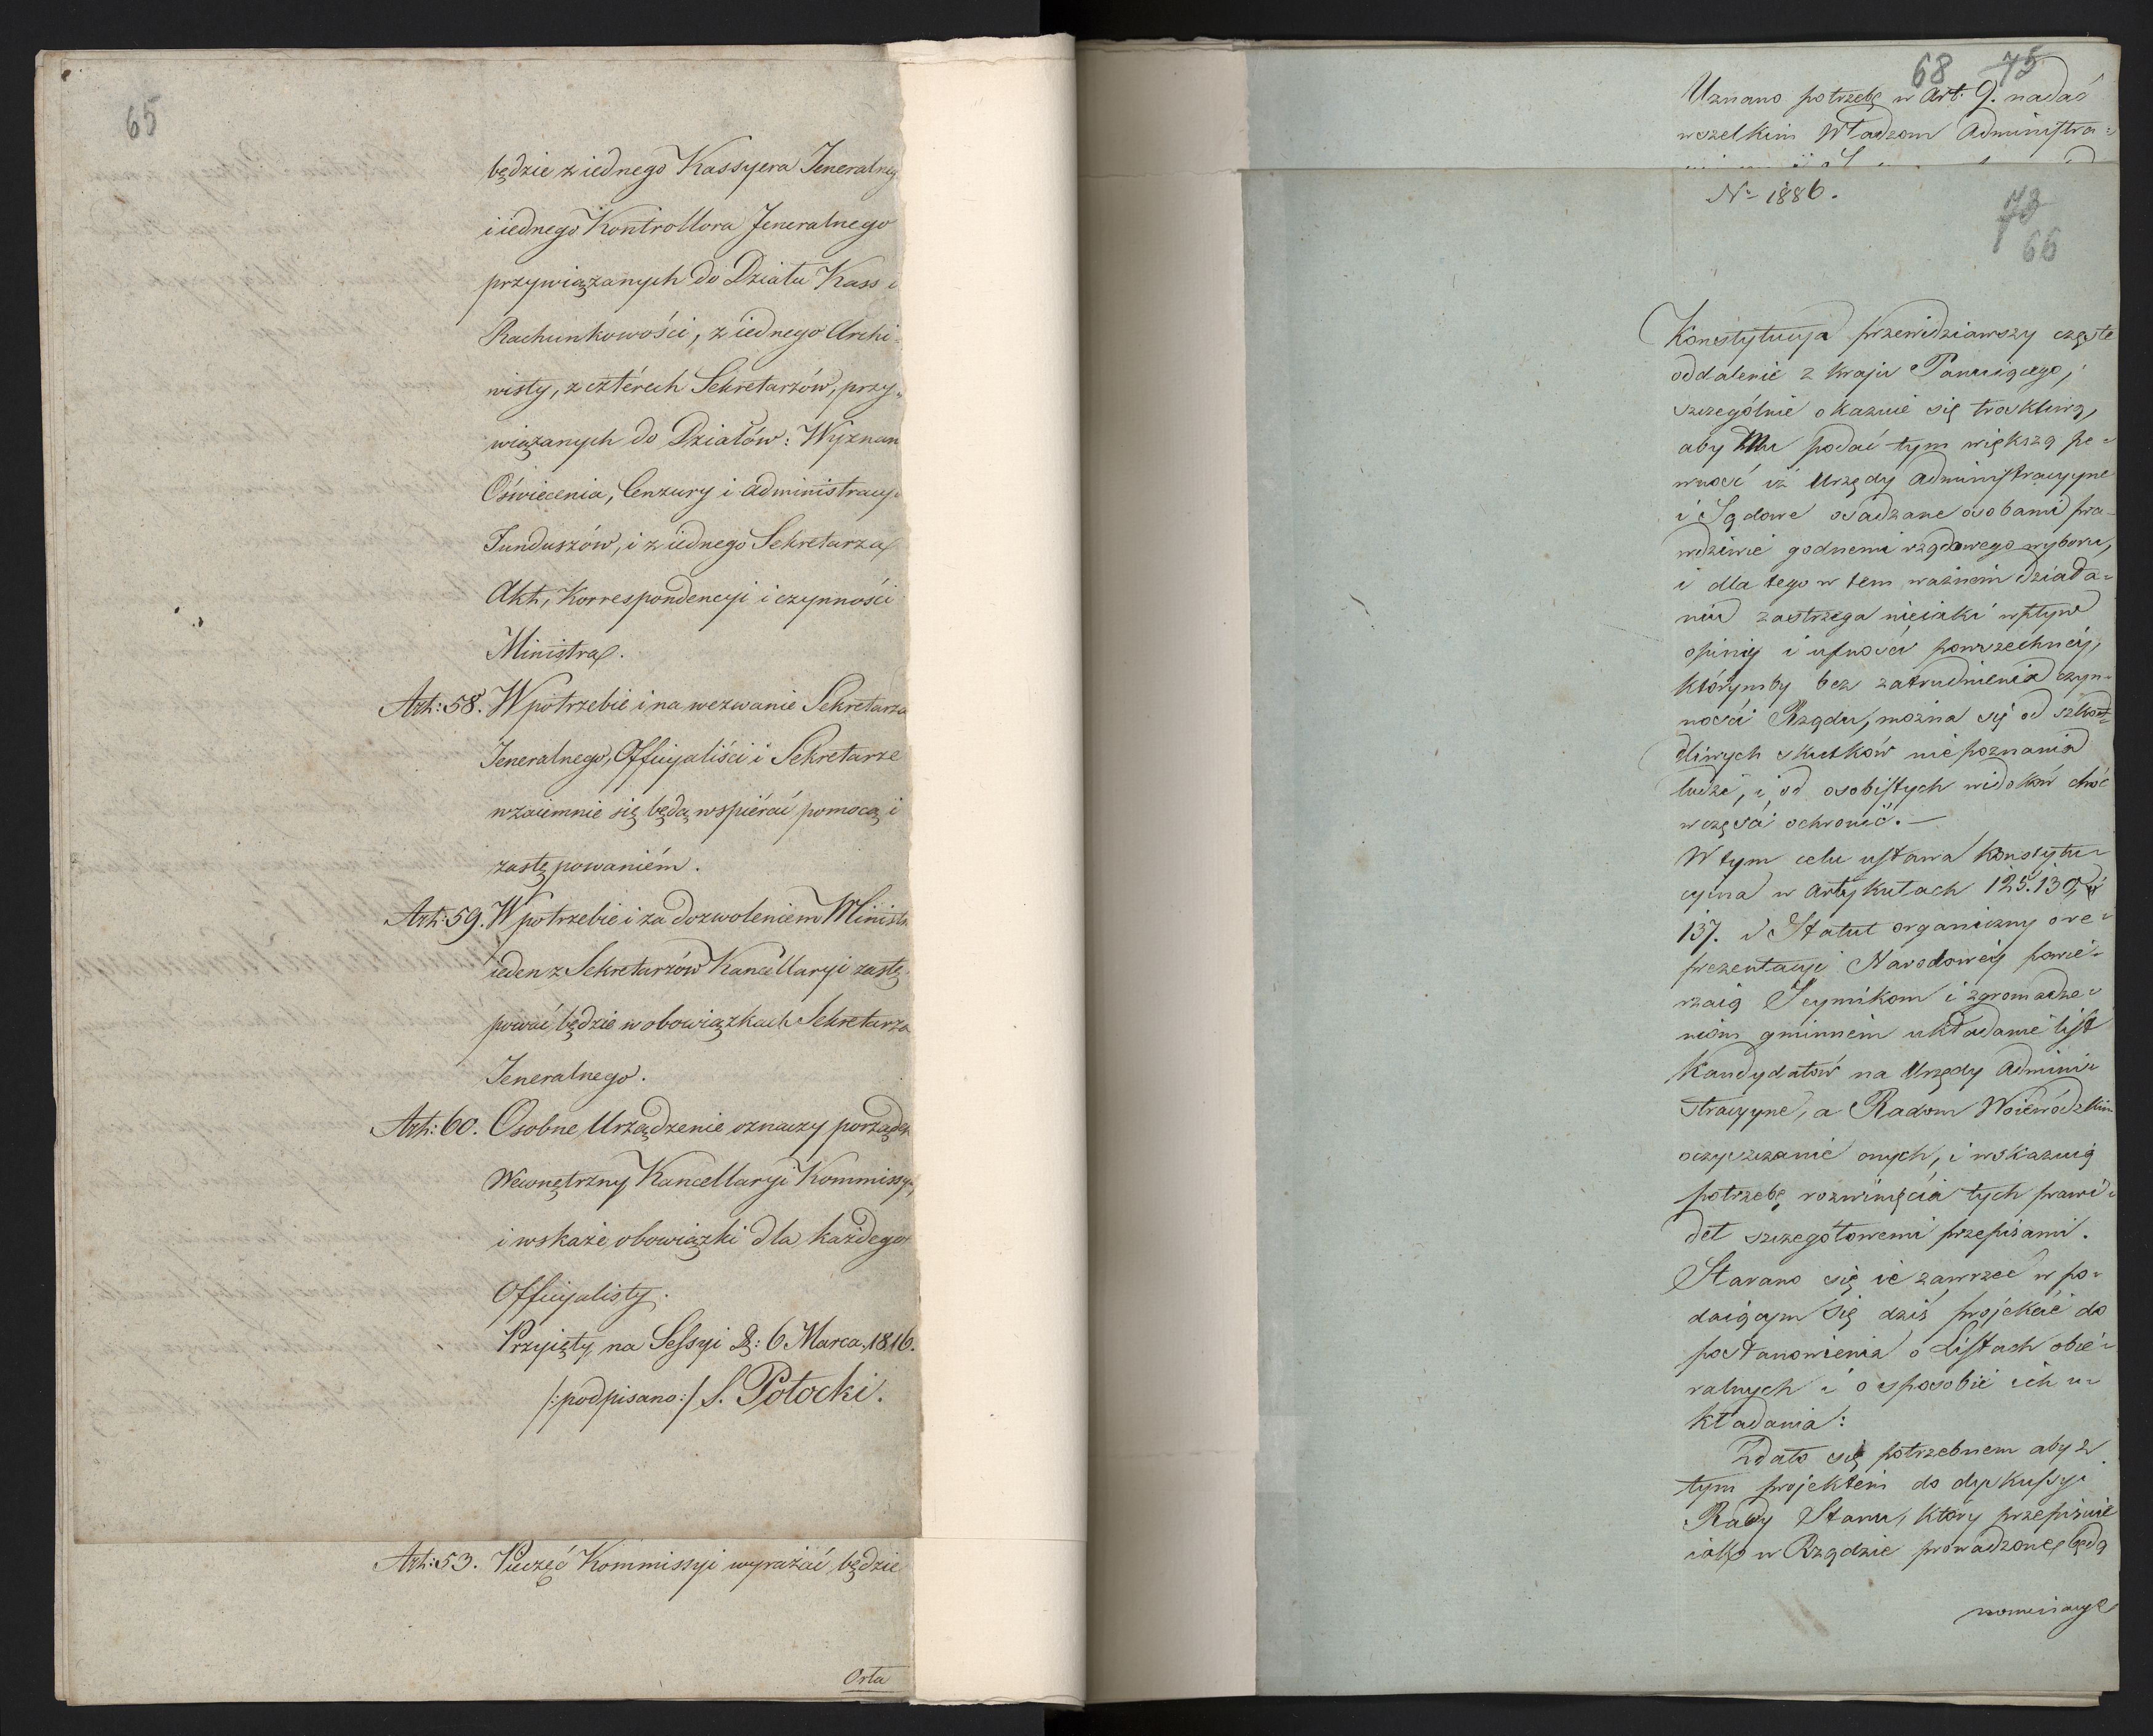 65
będzie z iednego Kassyera Jeneralneg
i iednego Kontrollora Jeneralnego
przywiązanych do Działu Kass i
Rachunkowości, z iednego Archi=
wisty, z cztérech Sekretarzów, przy„
wiązanych do Działów: Wyznan
Oświecenia, Cenzury i Administracyi
Funduszów, i z iednego Sekretarza
Akt, Korrespondencyi i czynności
Ministra.
Art: 58. W potrzebie i na wezwanie Sekretarza
Jeneralnego, Officyaliści i Sekretarze
wzaiemnie się będą wspiérać pomocą i
zastępowaniém.
Art: 59. W potrzebie i za dozwoleniem Ministr
ieden z Sekretarzów Kancellaryi zastę
pować będzie w obowiązkach Sekretarza
Jeneralnego.
Art: 60. Osobne Urządzenie oznaczy porządek
Wewnętrzny Kancellaryi Kommissyi,
i wskaże obowiązki dla każdego
Officyalisty.
Przyięty na Sessyi D: 6 Marca, 1816.
/:podpisano:/ S. Potocki.
Art: 53. Pieczęć Kommissyi wyrażać będzie
Orła
68 75
Uznano potrzebę w Art. 9. nadać
wszelkim Władzom Administra=
No 1886.
73
66
Konstytucyja przewidziawszy częste
oddalenie z kraju Panuiącego,
szczególnie okazuie się troskliwą,
aby Mu podać tym większą pe=
wność iż Urzędy Administracyyne
i Sądowe osadzane osobami pra=
wdziwie godnemi rządowego wyboru,
i dla tego w tem ważnem działa=
niu zastrzega nieiaki wpływ
opinij i ufności powszechnéy,
którymby bez zatrudnienia czyn=
ności Rządu, można się od szkod=
dliwych skutków niepoznania
ludzi, i od osobistych widoków choć
w części ochronić.—
W tym celu ustawa Konstytu=
cyina w Artykułach 125. 130, i
137. i Statut organiczny o re=
prezentacyi Narodowéy powie=
rzaią Seymikom i zgromadze=
niom gminnem układanie list
Kandydatów na Urzędy Admini=
stracyyne, a Radom Woiewódzkim
oczyszczanie onych, i wskazuią
potrzebę rozwinięcia tych prawi=
deł szczegółowemi przepisami.
Starano się ie zawrzeć w po=
daiącym się dziś projekcie do
postanowienia o Listach obie=
ralnych i o sposobie ich u=
kładania:
Zdało się potrzebnem aby z
tym projektem do dyskussyi
Rady Stanu, który przepisuie
iako w Rządzie prowadzone będą
nominacye